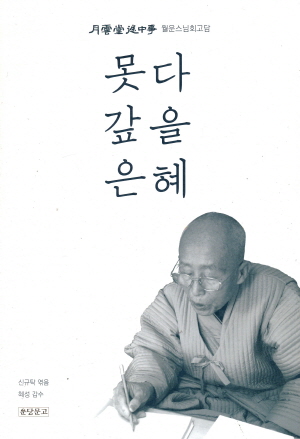 月雲堂 途中事 월운스님회고담
못다
갚을
은혜
신규탁 엮음
해성 감수
운당문고